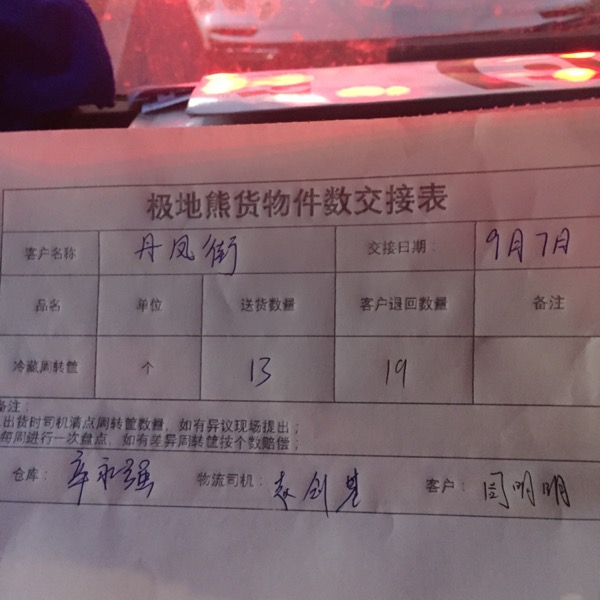 极地熊货物件数交接表
客户名称 丹凤街 交接日期: 9月7日
品名 单位 送货数量 客户退回数量 备注
冷藏周转筐 个 13 19
备注:
出货时司机清点周转筐数量，如有异议现场提出；
每周进行一次盘点，如有差异周转筐按个数赔偿；
仓库: 永强 物流司机: 创基 客户: 闫明明